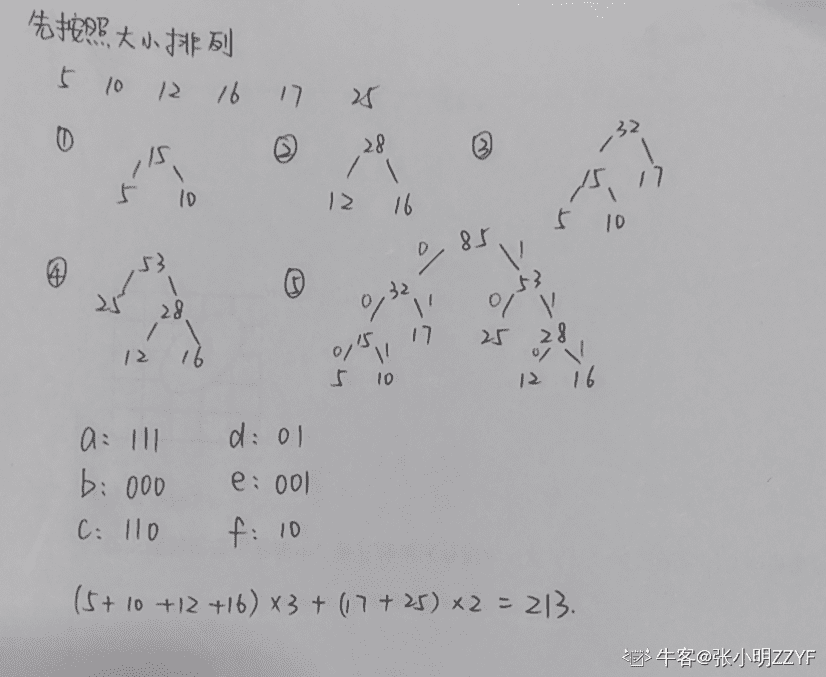 先按照大小排列
5 10 12 16 17 25
① ② ③
15
5 10
28
12 16
32
15 17
5 10
④ ⑤
53
25 28
12 16
0 85 1
0 32 1 0 53 1
0 15 1 17 25 0 28 1
5 10 12 16
a: 111 d: 01
b: 000 e: 001
c: 110 f: 10
(5+10+12+16)×3+(17+25)×2=213.
牛客@张小明ZZYF